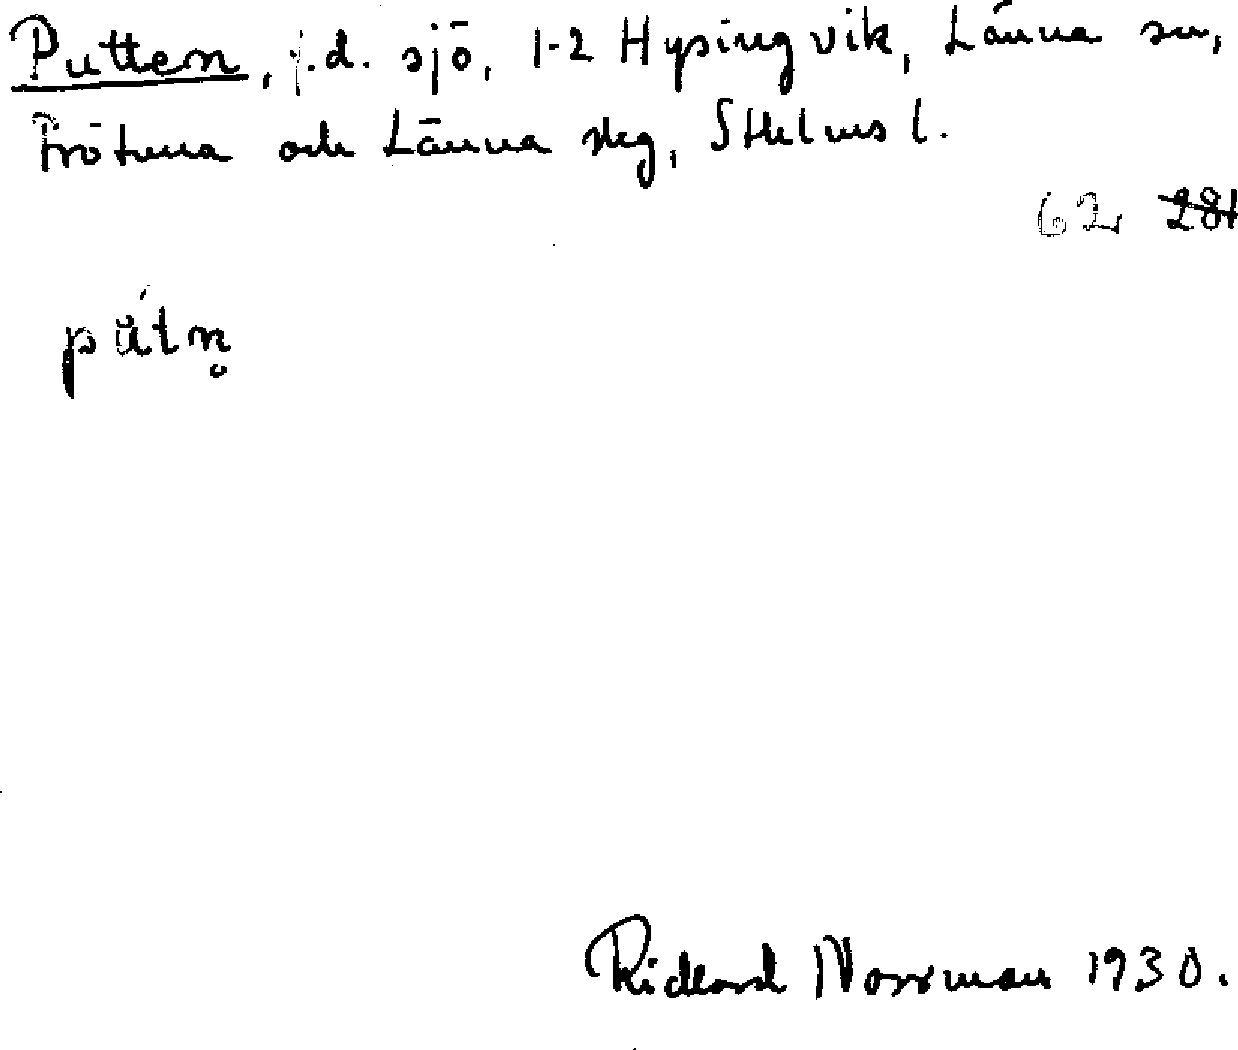 Putten, f.d. sjö, 1-2 Hysingvik, Länna sn,
Frötuna och Länna skg, Sthlms l.
62 281
pát n̥
Richard Norrman 1930.